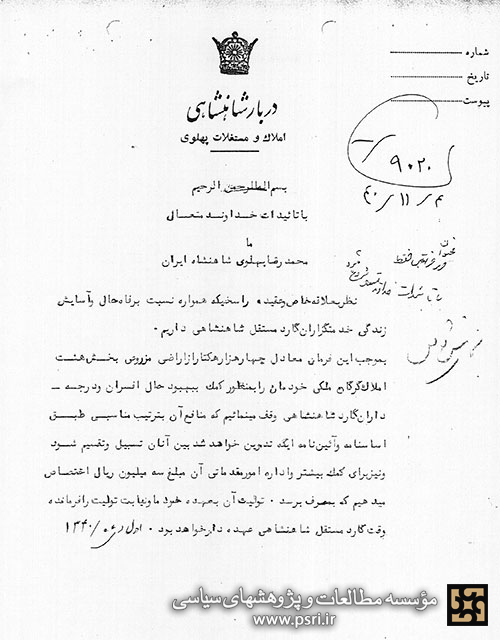 دربار شاهنشاهی
املاک و مستغلات پهلوی
شماره
تاریخ
پیوست
۹۰۲۰
۴۰/۱۱/۴
بسم الله الرحمن الرحیم
با تائیدات خداوند متعال
ما
محمد رضا پهلوی شاهنشاه ایران
نظر بعلاقه خاص و عقیده راسخیکه همواره نسبت برفاه حال و آسایش
زندگی خدمتگزاران گارد مستقل شاهنشاهی داریم ۰
بموجب این فرمان معادل چهار هزار هکتار از اراضی مزروعی بخش هشت
املاک گرگان ملکی خودمان را بمنظور کمک ببهبود حال افسران و درجه ــ
داران گارد شاهنشاهی وقف مینمائیم که منافع آن بترتیب مناسبی طبق
اساسنامه و آئین نامه ایکه تدوین خواهد شد بین آنان تسبیل و تقسیم شود
و نیز برای کمک بیشتر و اداره امور مقدماتی آن مبلغ سه میلیون ریال اختصاص
میدهیم که بمصرف برسد ۰ تولیت آن بعهده خود ما و نیابت تولیت را فرمانده
وقت گارد مستقل شاهنشاهی عهده دار خواهد بود ۰ اول دی ماه ۱۳۴۰
مؤسسه مطالعات و پژوهشهای سیاسی
www.psri.ir